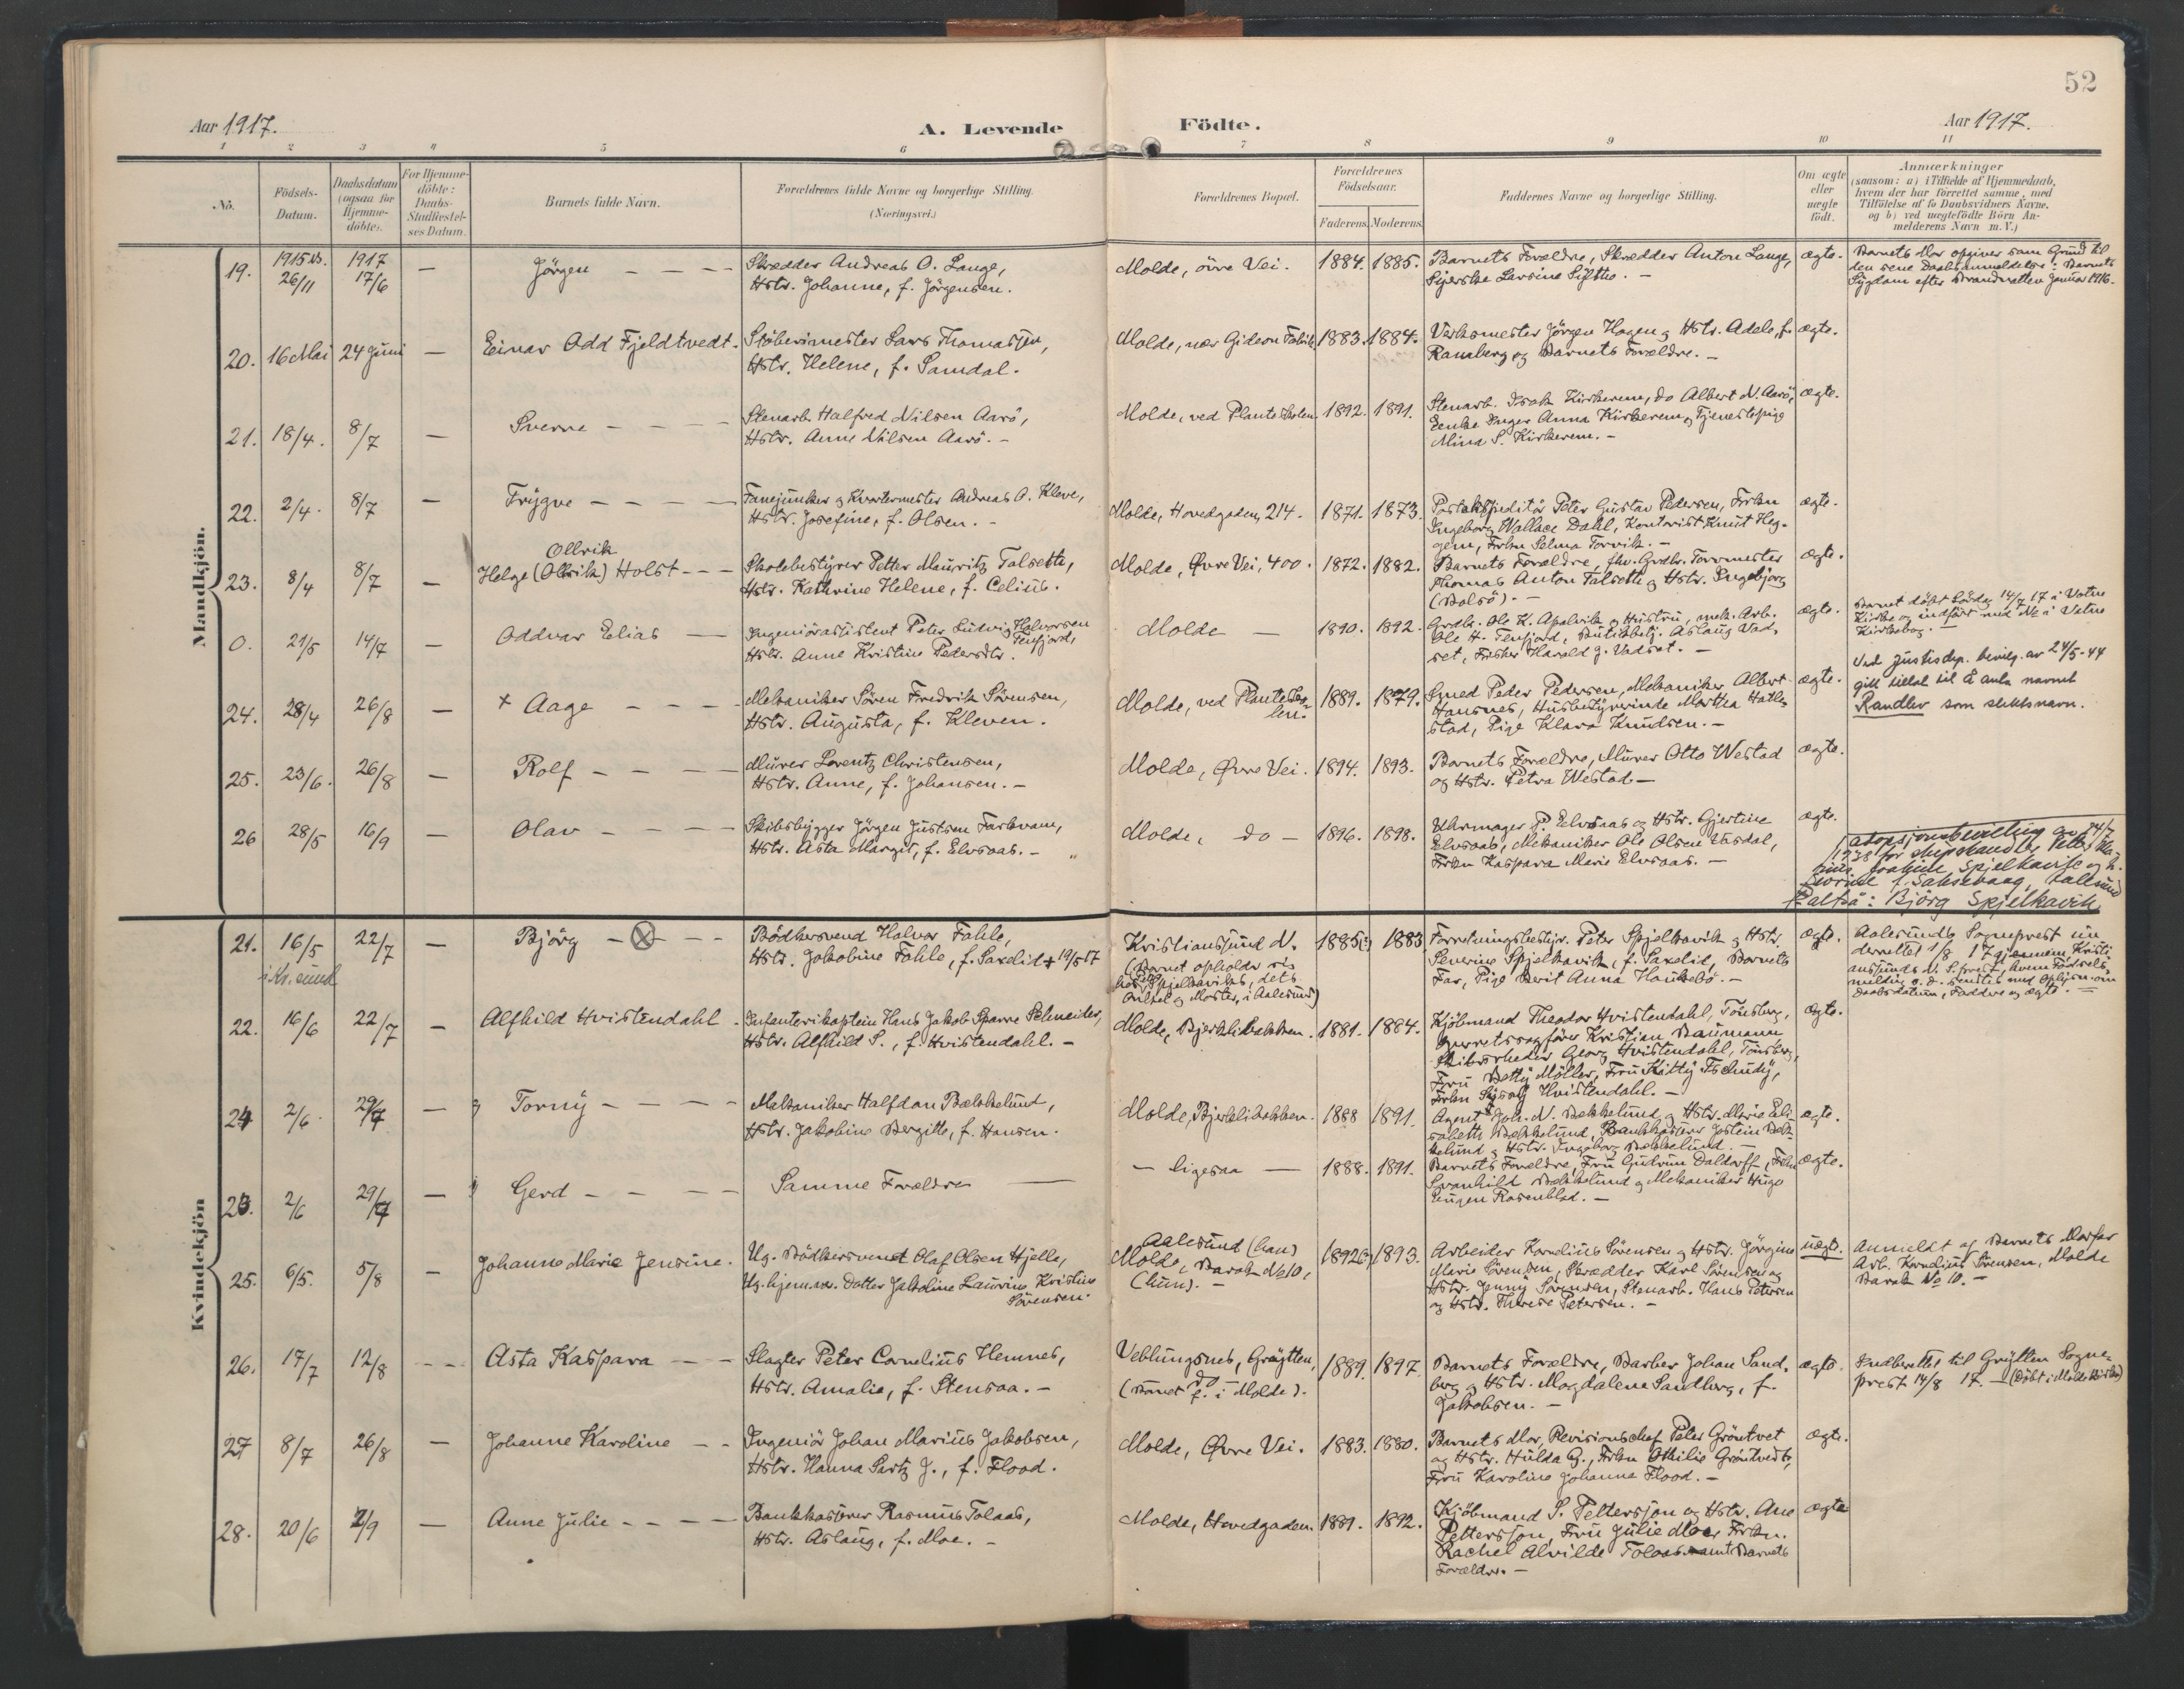 52
Aar 1917.
A. Levende Födte.
Aar 1917.
1 2 3 4 5 6 7 8 9 10 11
No.
Födsels-
Datum.
Daabsdatum
(ogsaa for
Hjemme-
döbte).
For Hjemme-
döbte:
Daabs-
Stadfæstel-
ses Datum.
Barnets fulde Navn.
Forældrenes fulde Navne og borgerlige Stilling.
(Næringsvei.)
Forældrenes Bopæl.
Forældrenes
Födselsaar.
Faderens. Moderens.
Faddernes Navne og borgerlige Stilling.
Om ægte
eller
uægte
födt.
Anmærkninger
(saasom: a) i Tilfælde af Hjemmedaab,
hvem der har forrettet samme, med
Tilföielse af to Daabsvidners Navne,
og b) ved uægtefödte Börn An-
melderens Navn m. V.)
Mandkjön.
19. 1915 26/11 1917 17/6 — Jörgen — — —
Skrædder Andreas O. Lange,
Hstr. Johanne, f. Jörgensen.
Molde, övre Vei. 1884. 1885.
Barnets Forældre, Skrædder Anton Lange,
Sÿerske Lavsine
ægte.
Barnets Mor opgiver som Grund til
den sene Daabsanmeldelse: Barnets
Sygdom efter Brandnatten Januar 1916.
20. 16 Mai 24 Juni — Einar Odd Fjeldtvedt.
Stöberimester Lars Thomassen,
Hstr. Helene, f. Samdal.
Molde, nær Gideon Fabrik 1883. 1884.
Verksmester Jörgen Hagen og Hstr. Adele, f.
Ramberg og Barnets Forældre. —
ægte.
21. 18/4. 8/7 — Sverre — — —
Stenarb. Halfred Nilsen Aarö,
Hstr. Anne Nilsen Aarö. —
Molde, ved Planteskolen 1892. 1891.
Stenarb. Isak Kirkerem, do Albert N. Aarö,
Enke Inger Anna Kirkerem, Tjenestepige
Mina S. Kirkerem. —
ægte.
22. 2/4. 8/7 — Trÿgve — — —
Fanejunker og Kvartermester Andreas A. Kleve,
Hstr. Josefine, f. Olsen. —
Molde, Hovedgaden, 214. 1871. 1873.
Postekspeditör Peter Gustav Pedersen, Frkn
Ingeborg Wallace Dahl, Kontorist Knut Heg-
gem, Frkn Selma Torvik. —
ægte.
23. 8/4 8/7 — Ollrik
Helge (Olrik) Holst — — —
Skolebestyrer Petter Mauritz Talseth,
Hstr. Kathrine Helene, f. Celius.
Molde, Øvre Vei, 400. 1872. 1882.
Barnets Forældre, fhv. Grdbr. Torvmester
Thomas Anton Talseth og Hstr. Ingebjorg
(Bolsö). —
ægte.
0. 21/5 14/7 — Oddvar Elias —
Ingeniörassistent Peter Ludvig Halvorsen
Tenfjord,
Hstr. Anne Kristine Pedersdtr.
Molde — 1890. 1892.
Grdbr. Ole K. Apalvik og Hustru, mek. Arb.
Ole H. Tenfjord, Butikbetj. Aslaug Vad-
set, Fisker Harald J. Vadset. —
ægte.
Barnet döpt Lördag 14/7 17 i Vatne
Kirke og indfört med No i Vatne
Kirkebog. —
24. 28/4 26/8 — + Aage — — —
Mekaniker Sören Fredrik Sörensen,
Hstr. Augusta, f. Kleven.
Molde, ved Plantesko-
len. 1889. 1879.
Smed Peder Pedersen, Mekaniker Albert
Hansnes, Husbestyrerinde Martha Hatle-
stad, Pige Klara Knudsen. —
ægte.
Ved Justisdep. bevilg. av 24/5-44
gitt tillat til å anta navnet
Randlev som slektsnavn.
25. 23/6. 26/8 — Rolf — — —
Murer Lorentz Christensen,
Hstr. Anne, f. Johansen. —
Molde, Øvre Vei. 1894. 1893.
Barnets Forældre, Murer Otto Westad
og Hstr. Petra Westad —
ægte.
26 28/5 16/9 — Olav — — —
Skibsbÿgger Jörgen Justsen Farkvam,
Hstr. Asta Margit, f. Elvsaas. —
Molde, do — 1896. 1898.
Uhrmager P. Elvsaas og Hstr. Gjertine
Elvsaas, Mekaniker Ole Olsen
Frkn Kaspara Marie Elvsaas. —
ægte.
adopsjonsbevilling av 24/7
1928 for skipshandler Peter
Joakim Spjelkavik og h.
Severine f. Saksevaag, Aalesund
Kaldes: Björg Spjelkavik
Kvindekjön
21. 16/5 i Kr.sund 22/7 — Björg — ⊗ — —
Bödkersvend Halvor Fahle,
Hstr. Jakobine Fahle, f. Saxelid + 19/5 17
Kristianssund N.
(Barnet opholder sig
hos Spjelkaviks, dets
Onkel og Moster, i Aalesund)
1885 1883
Forretningsbestyr. Peter Spjelkavik og Hstr.
Severine Spjelkavik, f. Saxelid, Barnets
Far, Pige Berit Anna Haukebö. —
ægte.
Aalesunds Sogneprest un-
derrettet 1/8 17 gjennem Kristi-
anssunds N. S. prest, hvem Födsels-
melding s. d. sendtes med Oplysn. om
Daabsdatum, Faddere og ægte. —
22. 16/6 22/7 — Alfhild Hvistendahl
Infanterikaptein Hans Jakob Sparre Schneider,
Hstr. Alfhild S., f. Hvistendahl. —
Molde, Bjerklibakken. 1881. 1884.
Kjöbmand Theodor Hvistendahl, Tönsberg,
Overretssagförer Kristian Baumann
Skibsrheder Georg Hvistendahl, Tönsberg,
Fru Betty Möller, Fru Kitty Tschudy,
Frkn Hvistendahl. —
ægte.
24 2/6. 29/7 — Tornÿ — — —
Mekaniker Halfdan Bækkelund,
Hstr. Jakobine Bergitte, f. Hansen.
Molde, Bjerklibakken. 1888 1891.
Agent Joh. N. Bækkelund og Hstr. Marie Eli-
sabeth Bækkelund, Bankkasserer Jostein Bæk-
kelund og Hstr. Ingeborg Bækkelund
ægte.
23. 2/6 29/7 — Gerd — — —
Samme Forældre —
— ligesaa — 1888. 1891.
Barnets Forældre, Fru Gudrun Daldorff, Frkn
Svanhild Bækkelund og Mekaniker Hugo
Eugen Rosenblad. —
ægte.
25. 6/5. 5/8 — Johanne Marie Jensine.
Ug. Bödkersvend Olaf Olsen Hjelle,
Ug. hjem.vær. Datter Jakobine Laurine Kristine
Sörensen.
Aalesund (han)
Molde, Barak No 10,
(hun). —
1892 1893.
Arbeider Kornelius Sörensen og Hstr. Jörgine
Marie Sörensen, Skrædder Karl Sörensen og
Hstr. Jenny Sörensen, Stenarb. Hans Petersen
og Hstr. Therese Petersen. —
uægte.
Anmeldt af Barnets Morfar
Arb. Kornelius Sörensen, Molde
Barak No 10. —
26. 17/7 12/8 — — Asta Kaspara — —
Slagter Peter Cornelius Hemnes,
Hstr. Amalie, f. Stensaa. —
Veblungsnes, Grÿtten,
(Barnet f. i Molde).
1889. 1897.
Barnets Forældre, Barber Johan Sand-
berg og Hstr. Magdalena Sandberg, f.
Jakobsen. —
ægte.
Indberettet til Grÿtten Sogne-
prest 14/8 17. — (Döbt i Molde Kirke)
27 8/7 26/8 — Johanne Karoline — —
Ingeniör Johan Marius Jakobsen,
Hstr. Hanna Sartz J., f. Flood.
Molde, Øvre Vei. 1883. 1880.
Barnets Mor, Revisionschef Peter Gröntvet
og Hstr. Hulda G., Frkn Othilie Gröntvedt,
Fru Karoline Johanna Flood. —
ægte.
28. 20/6 2/9 — Anne Julie — — —
Bankkasserer Rasmus Tolaas,
Hstr. Aslaug, f. Moe. —
Molde, Hovedgaden. 1881. 1892.
Kjöbmand S. Pettersson og Hstr. Ane
Pettersson, Fru Julie Moe, Frkn.
Rachel Alvilde Tolaas samt Barnets
Forældre. —
ægte